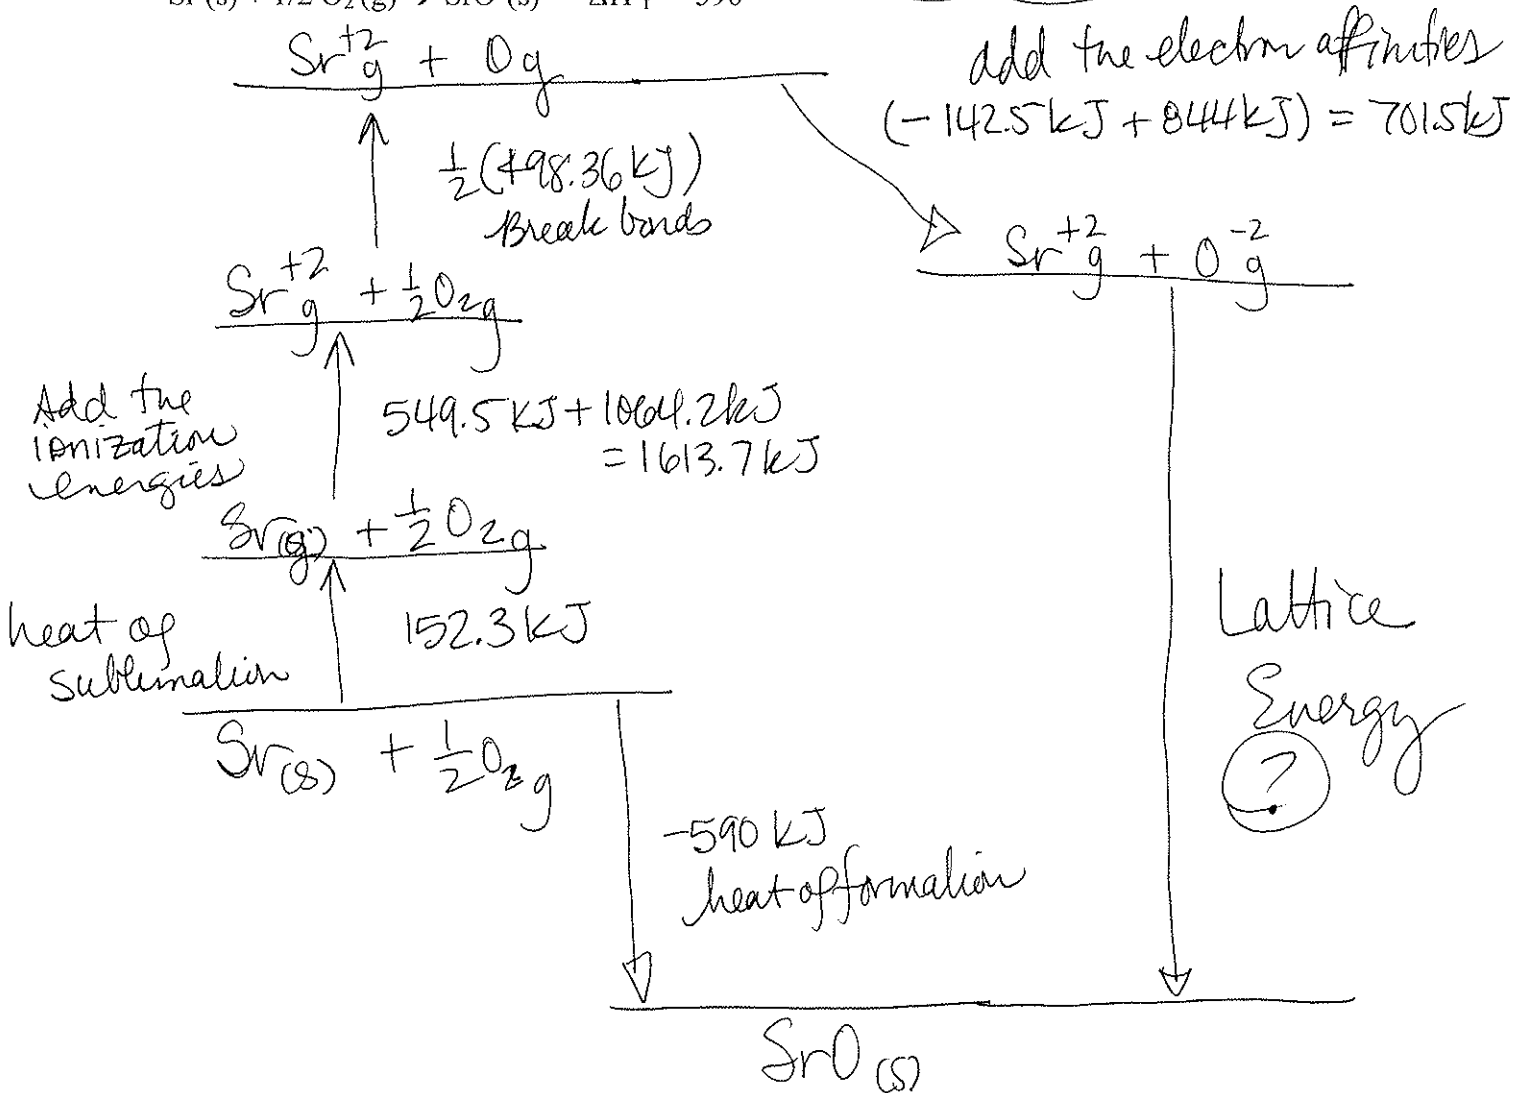 Sr (s) + 1/2 O₂(g) → SrO (s) ΔH f = -590
Sr⁺²g + Og
add the electron affinities
(-142.5 kJ + 844 kJ) = 701.5 kJ
½(498.36 kJ)
Break bonds
Sr⁺²g + O⁻²g
Sr⁺²g + ½O₂g
Add the
ionization
energies
549.5 KJ + 1064.2 kJ
= 1613.7 kJ
Sr(g) + ½O₂g
heat of
sublimation
152.3 KJ
Lattice
Energy
?
Sr(s) + ½O₂g
-590 KJ
heat of formation
SrO(s)